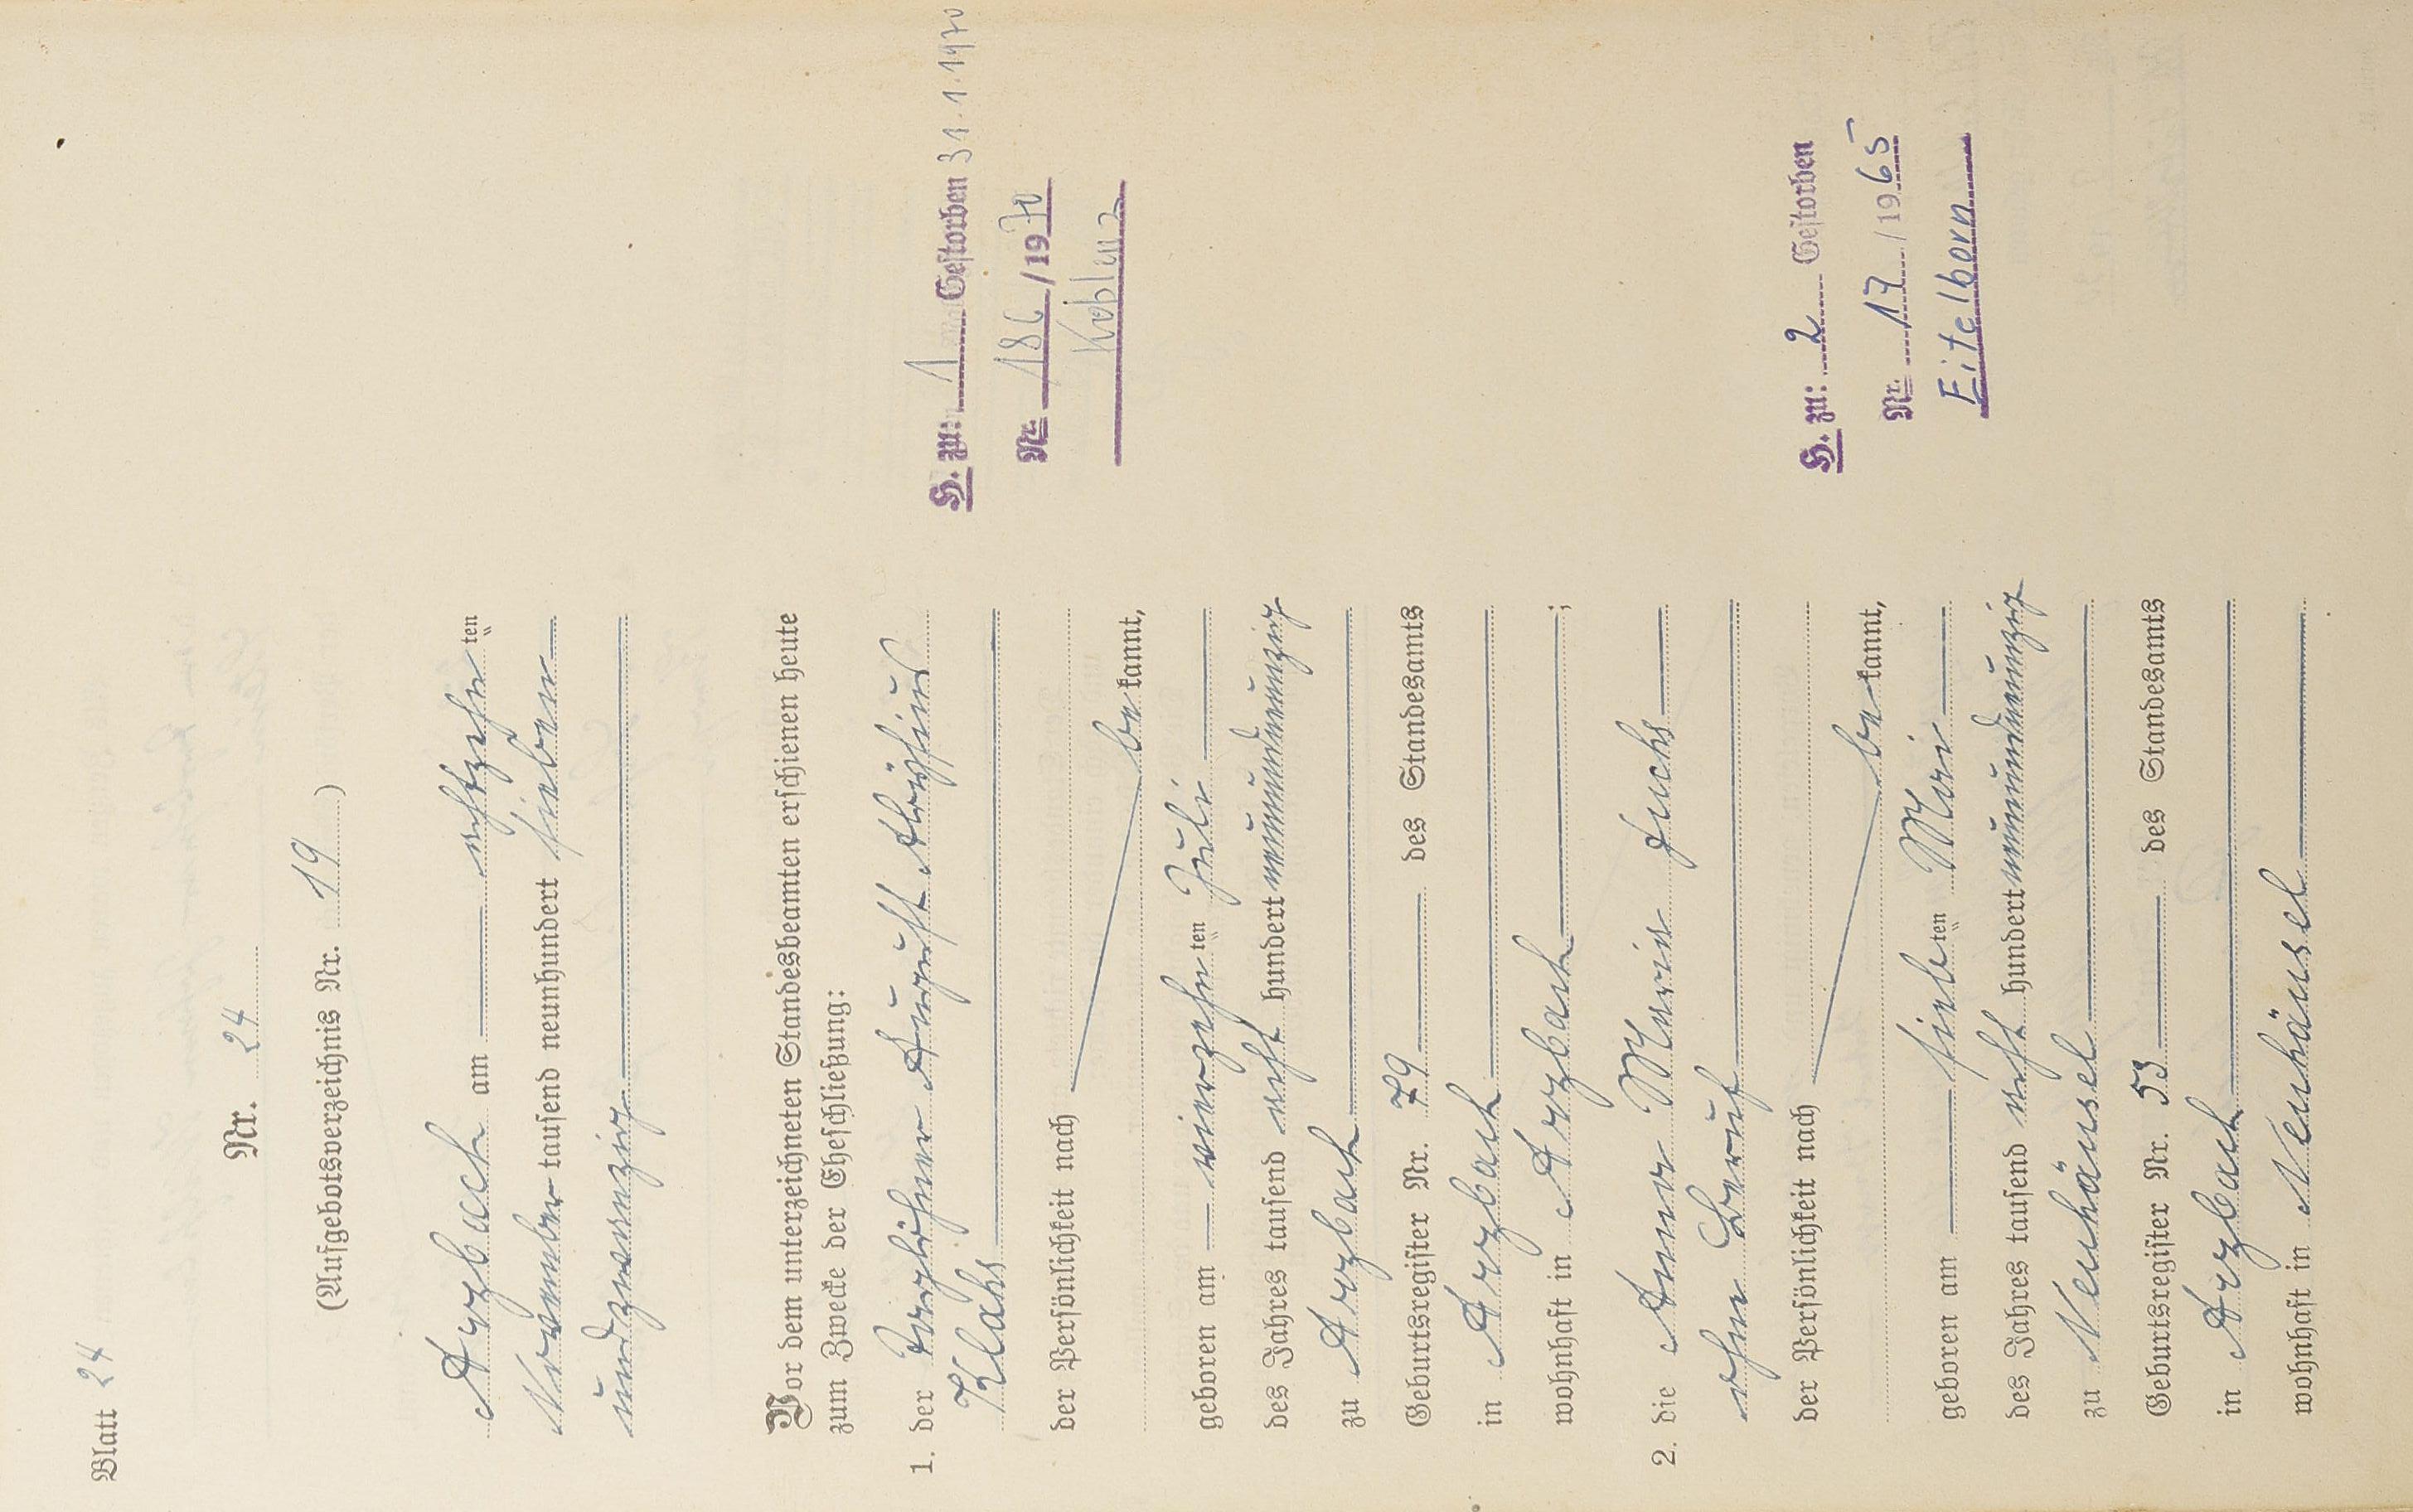 Blatt 24
Nr. 24
(Aufgebotsverzeichnis Nr. 19)
Arzbach am achtzehn ten
November tausend neunhundert sieben
undzwanzig
Vor dem unterzeichneten Standesbeamten erschienen heute
zum Zwecke der Eheschließung:
1. der August Aloysius
Klahs
der Persönlichkeit nach
be kannt,
geboren am vierzehn ten Juli
des Jahres tausend acht hundert neunundneunzig
zu Arzbach
Geburtsregister Nr. 79 des Standesamts
in Arzbach
wohnhaft in Arzbach ;
2. die Anna Maria Fuchs
ohne Beruf
der Persönlichkeit nach
be kannt,
geboren am sieb ten Mai
des Jahres tausend acht hundert neunundneunzig
zu Neuhäusel
Geburtsregister Nr. 53 des Standesamts
in Arzbach
wohnhaft in Neuhäusel
H. zu: 1 Gestorben 31.1.1970
Nr. 186/1970
Koblenz
H. zu: 2 Gestorben
Nr. 17/1965
Eitelborn